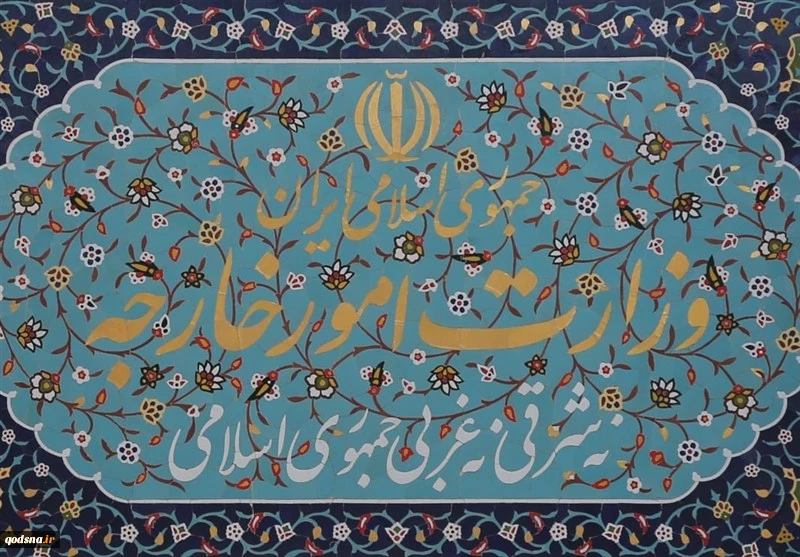 جمهوری اسلامی ایران
وزارت امور خارجه
نه شرقی نه غربی جمهوری اسلامی
qodsna.ir